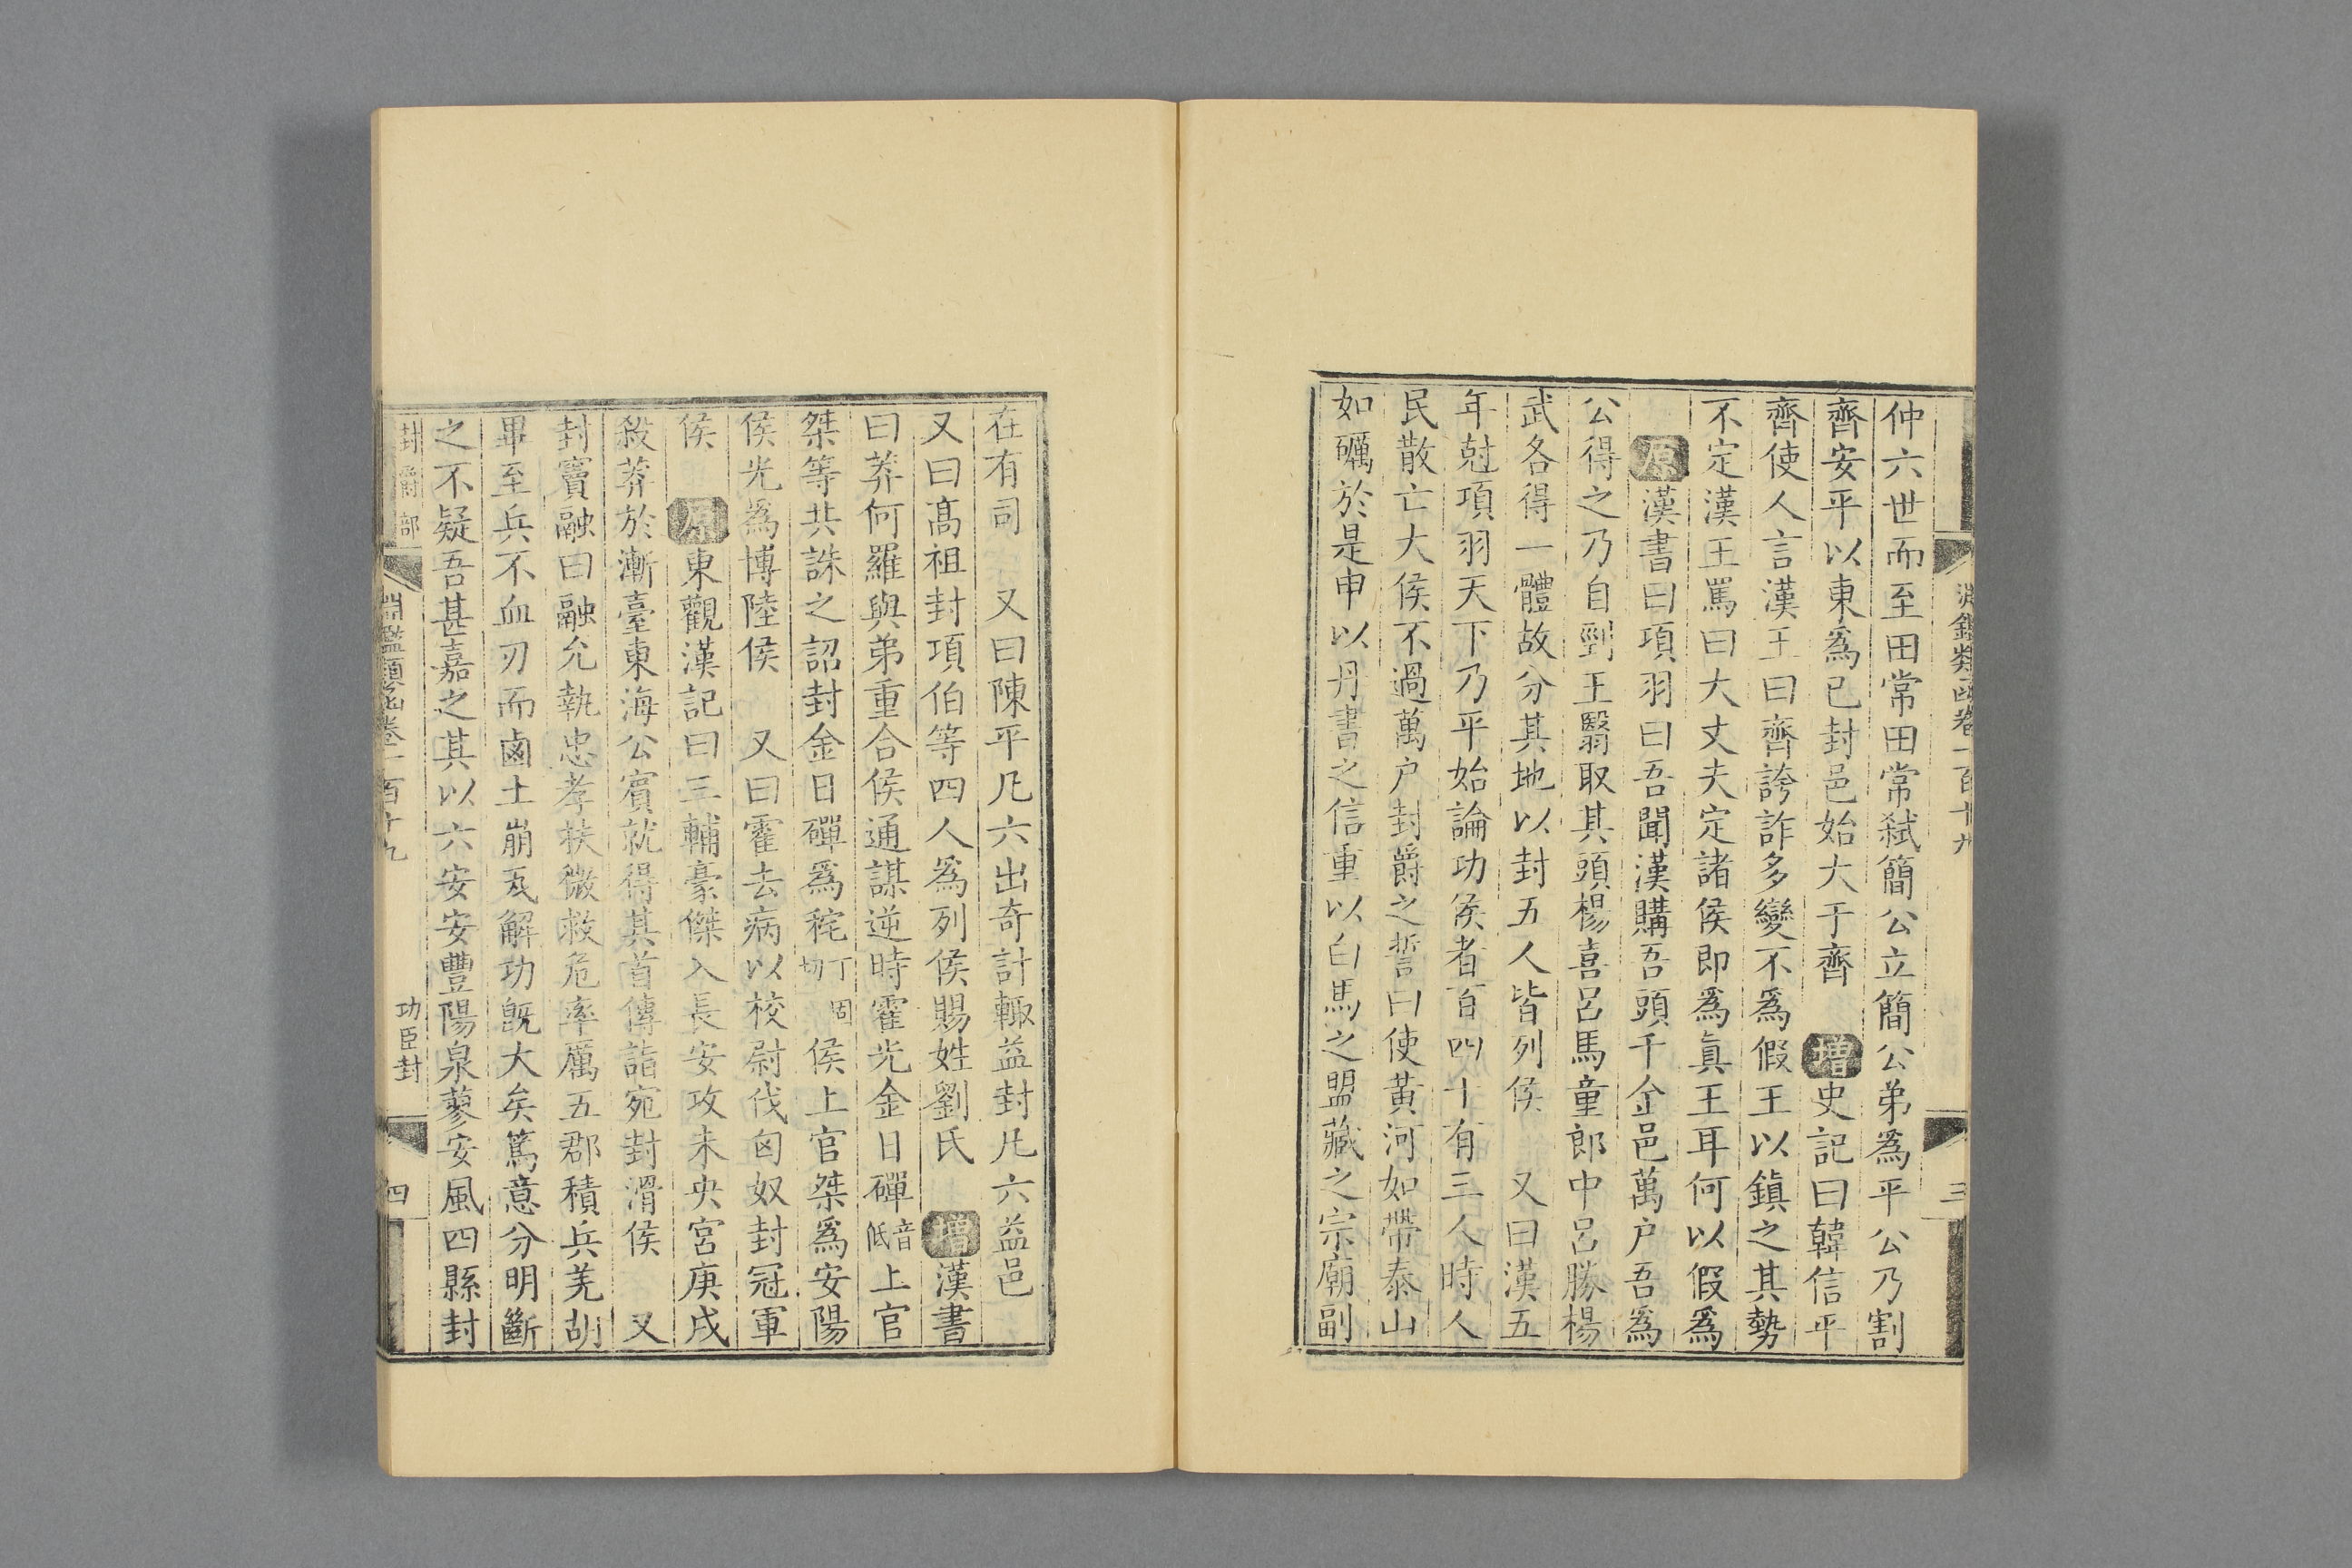 淵鑑類函卷一百十九
三
仲六世而至田常田常弒簡公立簡公弟爲平公乃割
齊安平以東爲己封邑始大于齊 增史記曰韓信平
齊使人言漢王曰齊誇詐多變不爲假王以鎮之其勢
不定漢王罵曰大丈夫定諸侯即爲眞王耳何以假爲
原漢書曰項羽曰吾聞漢購吾頭千金邑萬户吾爲
公得之乃自剄王翳取其頭楊喜呂馬童郎中呂勝楊
武各得一體故分其地以封五人皆列侯 又曰漢五
年尅項羽天下乃平始論功侯者百四十有三人時人
民散亡大侯不過萬户封爵之誓曰使黃河如帶泰山
如礪於是申以丹書之信重以白馬之盟藏之宗廟副
在有司 又曰陳平凡六出奇計輒益封凡六益邑
又曰髙祖封項伯等四人爲列侯賜姓劉氏 增漢書
曰莽何羅與弟重合侯通謀逆時霍光金日磾音低上官
桀等共誅之詔封金日磾爲秺丁固切侯上官桀爲安陽
侯光爲博陸侯 又曰霍去病以校尉伐匈奴封冠軍
侯 原東觀漢記曰三輔豪傑入長安攻未央宮庚戌
殺莽於漸臺東海公賓就得其首傳詣宛封滑侯 又
封竇融曰融允執忠孝扶微救危率厲五郡積兵羌胡
畢至兵不血刃而鹵土崩瓦解功旣大矣篤意分明斷
之不疑吾甚嘉之其以六安安豐陽泉蓼安風四縣封
封爵部
淵鑑類函卷一百十九
功臣封
四